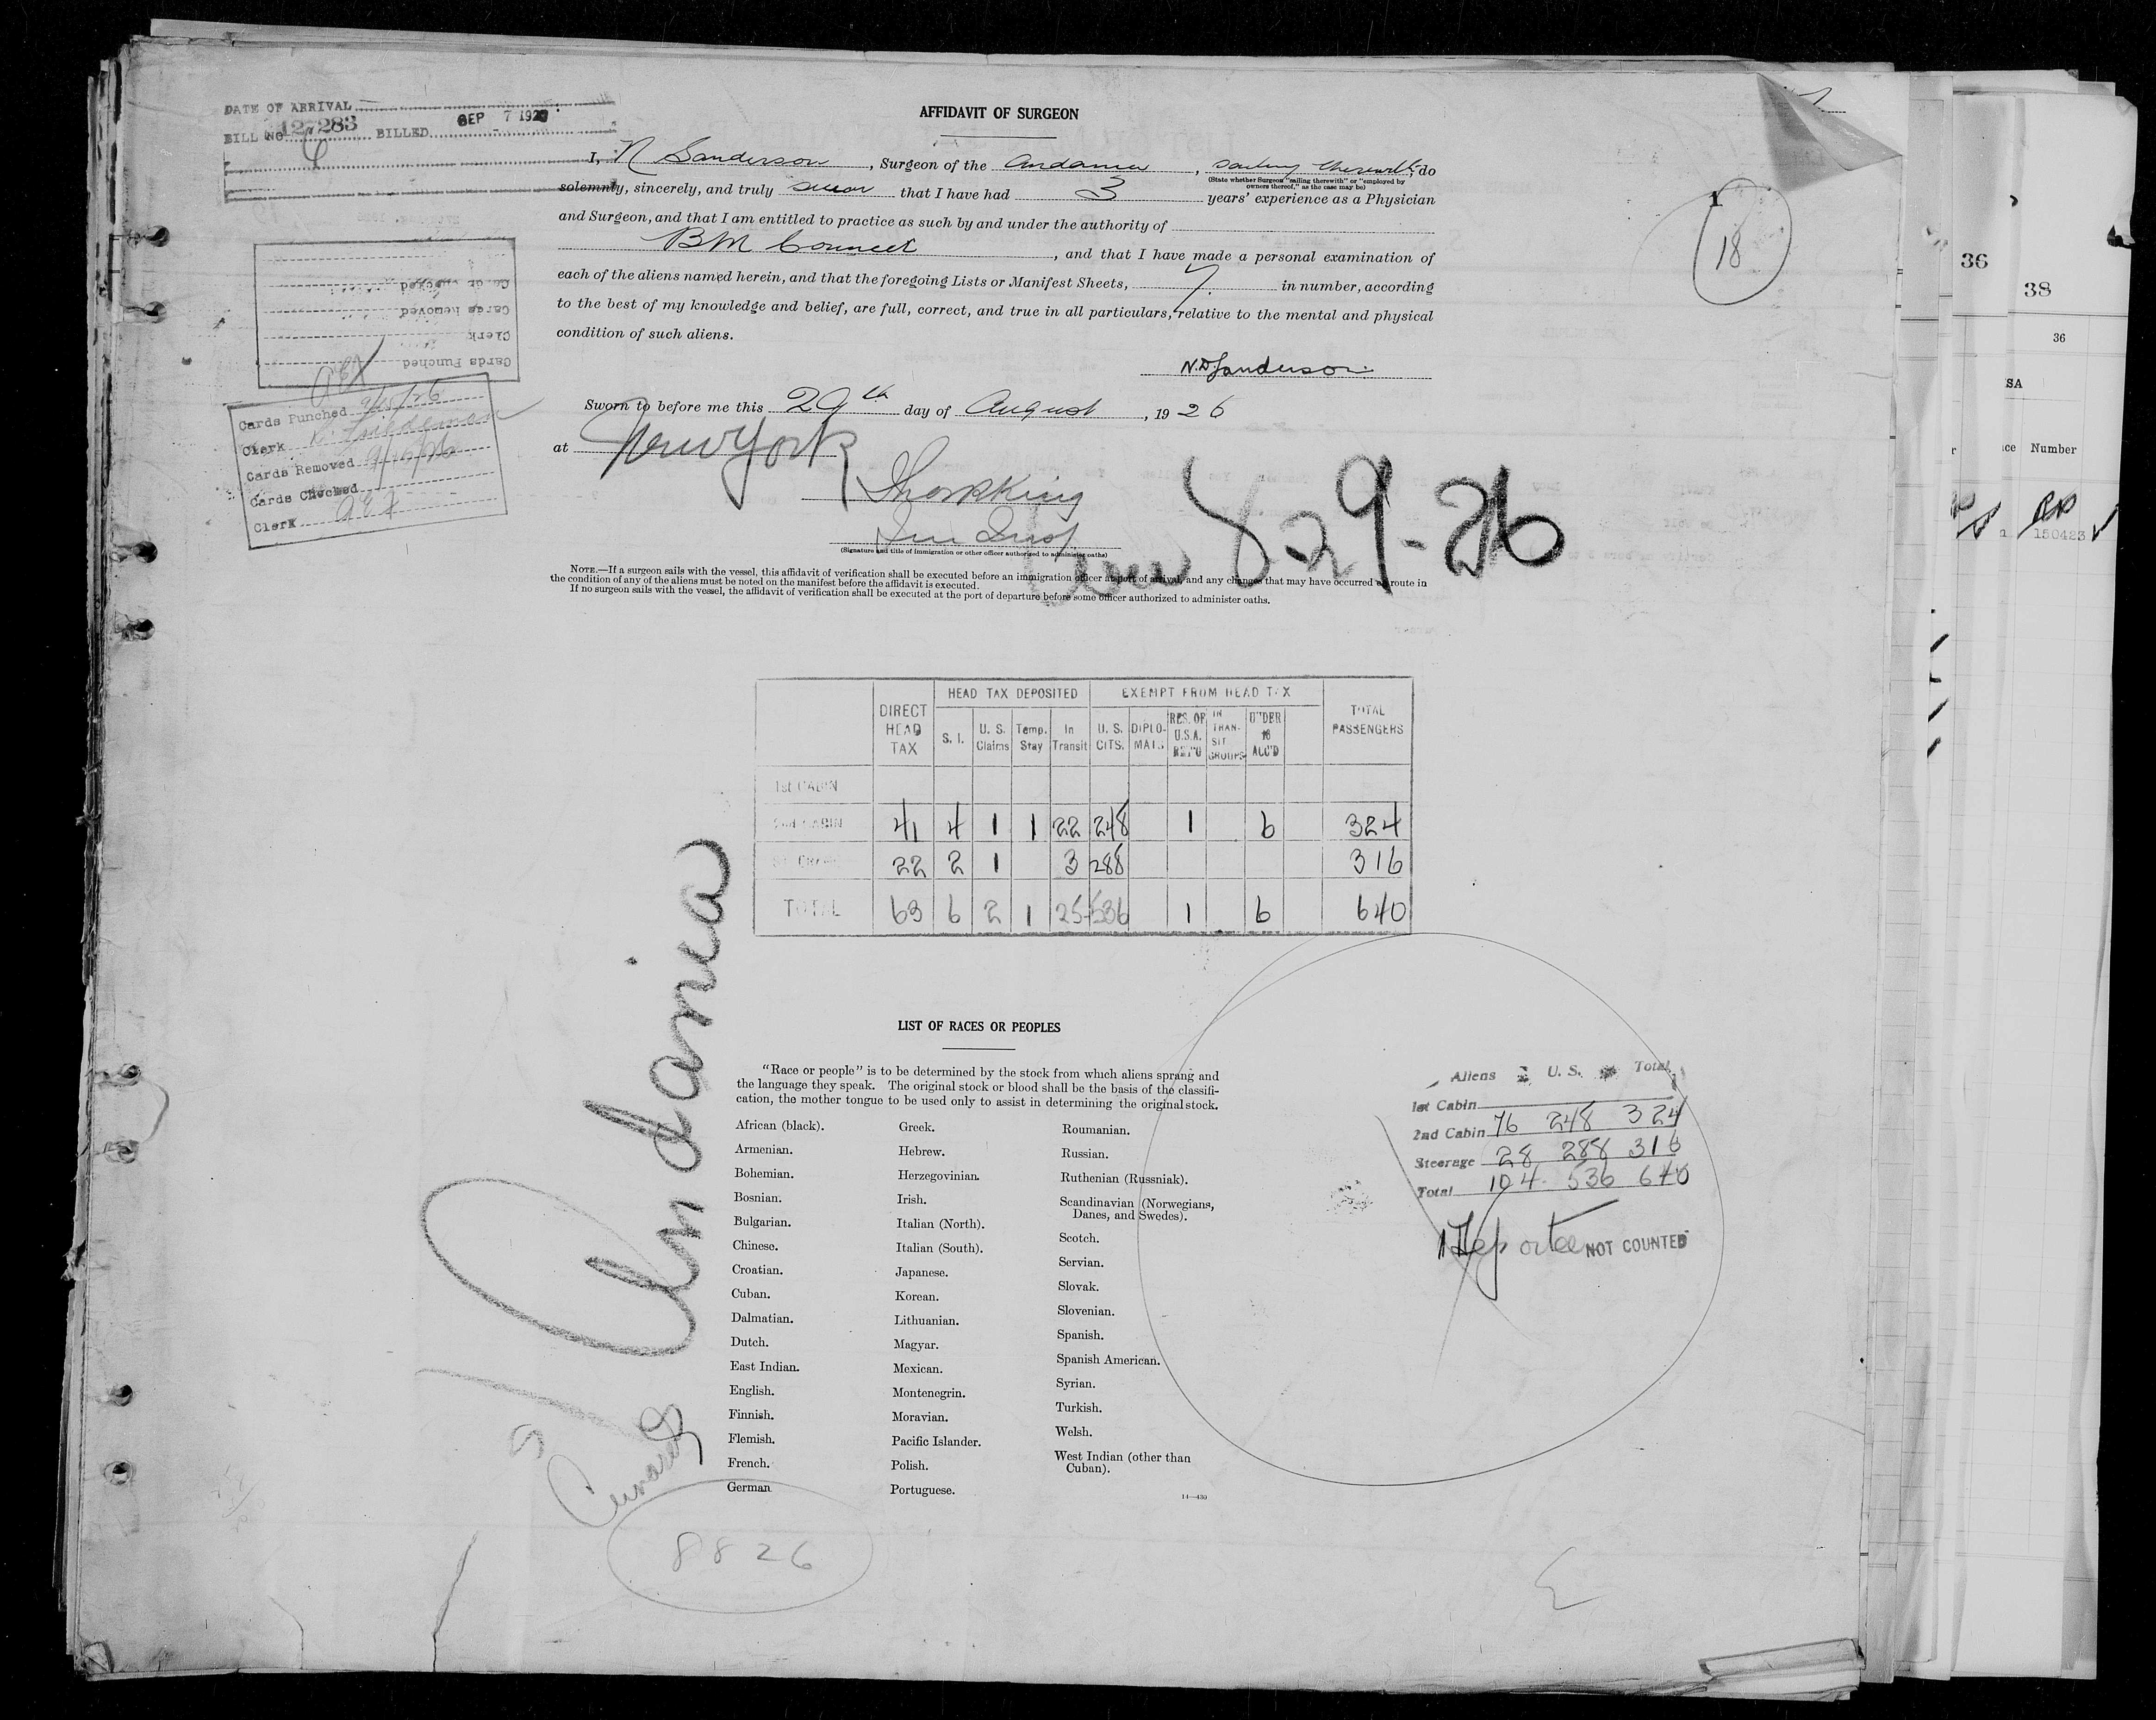 DATE OF ARRIVAL
BILL NO. 12283 BILLED SEP 7 192
AFFIDAVIT OF SURGEON
I, N Sanderson, Surgeon of the Andania, sailing therewith, do
(State whether Surgeon "sailing therewith" or "employed by
owners thereof," as the case may be)
solemnly, sincerely, and truly swear that I have had 3 years' experience as a Physician
and Surgeon, and that I am entitled to practice as such by and under the authority of
BM Council, and that I have made a personal examination of
each of the aliens named herein, and that the foregoing Lists or Manifest Sheets, 7. in number, according
to the best of my knowledge and belief, are full, correct, and true in all particulars, relative to the mental and physical
condition of such aliens.
N.D. Sanderson.
Sworn to before me this 29th day of August, 1926
at New York
Imm Insp
(Signature and title of immigration or other officer authorized to administer oaths)
8-29-26
NOTE.—If a surgeon sails with the vessel, this affidavit of verification shall be executed before an immigration officer at port of arrival, and any changes that may have occurred en route in
the condition of any of the aliens must be noted on the manifest before the affidavit is executed.
If no surgeon sails with the vessel, the affidavit of verification shall be executed at the port of departure before some officer authorized to administer oaths.
1
18
Cards Checked
Cards Removed
Clerk
Cards Punched
Cards Punched 9/15/26
Clerk Friedeman
Cards Removed 9/15/26
Cards Checked
Clerk
DIRECT HEAD TAX
HEAD TAX DEPOSITED
EXEMPT FROM HEAD TAX
TOTAL PASSENGERS
S. I. U. S. Claims Temp. Stay In Transit U. S. CITS. DIPLOMATS RES. OF U.S.A. RET'G IN TRANSIT GROUPS UNDER 16 ACC'D
1st CABIN
2nd CABIN 41 4 1 1 22 248 1 6 324
22 2 1 3 288 316
TOTAL 63 6 2 1 25 536 1 6 640
Andania
Cunard
8826
LIST OF RACES OR PEOPLES
"Race or people" is to be determined by the stock from which aliens sprang and
the language they speak. The original stock or blood shall be the basis of the classifi-
cation, the mother tongue to be used only to assist in determining the original stock.
African (black).
Armenian.
Bohemian.
Bosnian.
Bulgarian.
Chinese.
Croatian.
Cuban.
Dalmatian.
Dutch.
East Indian.
English.
Finnish.
Flemish.
French.
German
Greek.
Hebrew.
Herzegovinian.
Irish.
Italian (North).
Italian (South).
Japanese.
Korean.
Lithuanian.
Magyar.
Mexican.
Montenegrin.
Moravian.
Pacific Islander.
Polish.
Portuguese.
Roumanian.
Russian.
Ruthenian (Russniak).
Scandinavian (Norwegians,
Danes, and Swedes).
Scotch.
Servian.
Slovak.
Slovenian.
Spanish.
Spanish American.
Syrian.
Turkish.
Welsh.
West Indian (other than
Cuban).
14—430
Aliens U. S. Total
1st Cabin
2nd Cabin 76 248 324
Steerage 28 288 316
Total 104 536 640
1 Deportee NOT COUNTED
36
38
36
SA
Number
150423